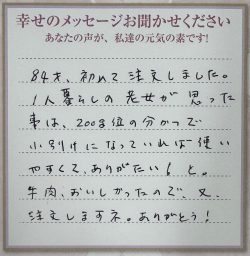 幸せのメッセージお聞かせください
あなたの声が、私達の元気の素です!
84才、初めて注文しました。
1人暮らしの老女が思った
事は、200g位の分かつで
小別けになっていれば使い
やすくて、ありがたい！と。
牛肉、おいしかったので、又、
注文しますネ。ありがとう！